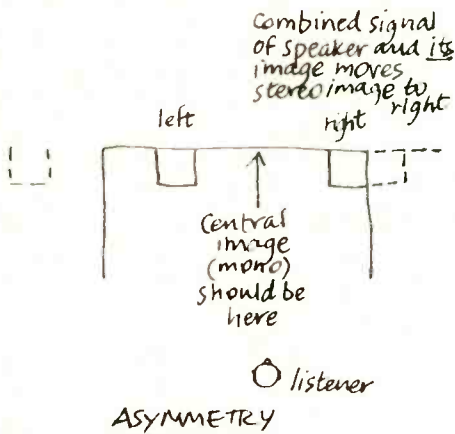 Combined signal
of speaker and its
image moves
stereo image to
right
left
right
Central
image
(mono)
should be
here
listener
ASYMMETRY